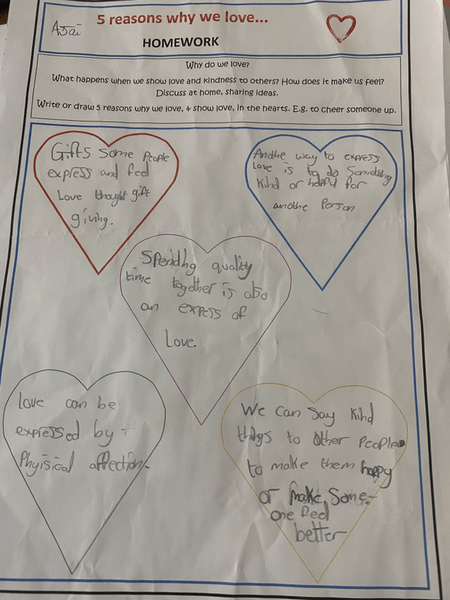 Ajai
5 reasons why we love...
HOMEWORK
Why do we love?
What happens when we show love and kindness to others? How does it make us feel?
Discuss at home, sharing ideas.
Write or draw 5 reasons why we love, + show love, in the hearts. E.g. to cheer someone up.
Gifts some People
express and feel
Love thought gift
giving.
Andthe way to express
Love is to do Something
Kind or helpful for
andthe Person
Spending quality
time together is also
an express of
Love.
Love can be
expressed by -
Phyisical affection.
We can Say Kind
things to Other People
to make them happy
or make Some-
one feel
better